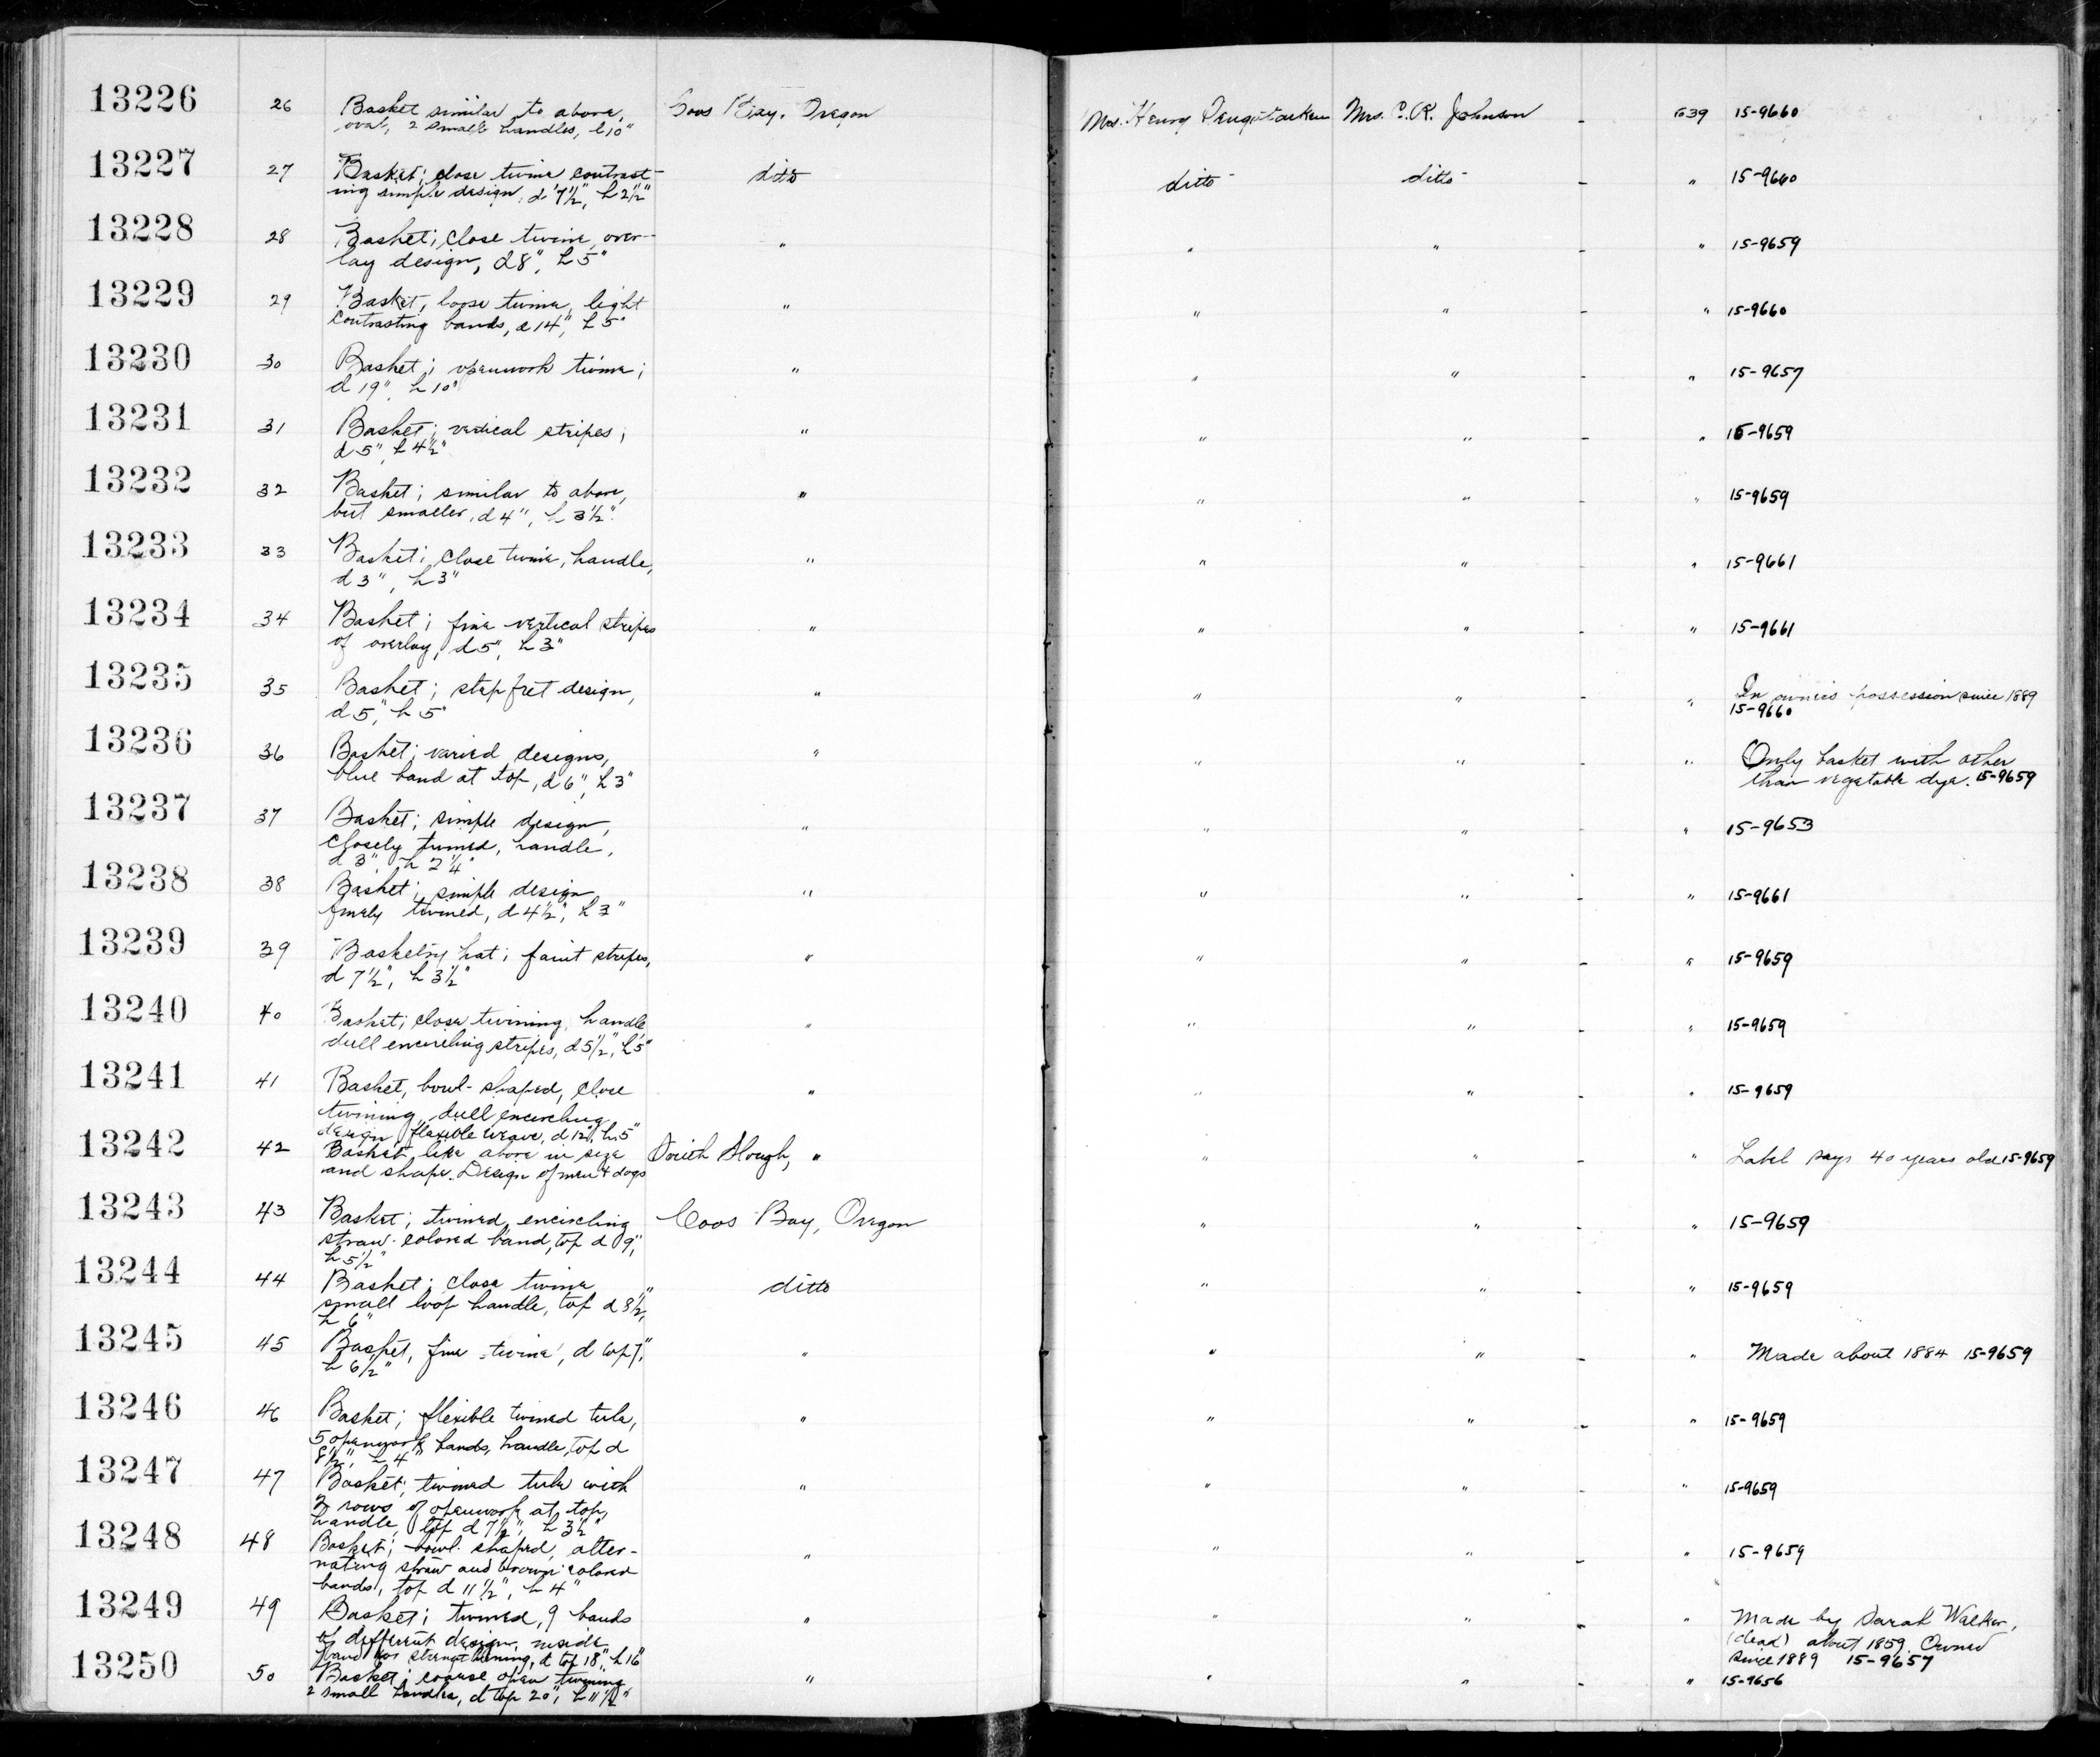 13226 26 Basket similar to above, Coos Bay, Oregon Mrs. Henry Mrs. C. R. Johnson - 639 15-9660
oval, 2 small handles, l 10"
13227 27 Basket; close twine contrast- ditto ditto ditto - " 15-9660
ing simple design, d 7½", h 2½"
13228 28 Basket; close twine, over- " " " - " 15-9659
lay design, d 8", h 5"
13229 29 Basket, loose twine, light " " " - " 15-9660
contrasting bands, d 14", h 5"
13230 30 Basket; openwork twine; " " " - " 15-9657
d 19", h 10"
13231 31 Basket; vertical stripes; " " " - " 15-9659
d 5", h 4½"
13232 32 Basket; similar to above, " " " - " 15-9659
but smaller, d 4", h 3½"
13233 33 Basket; close twine, handle, " " " - " 15-9661
d 3", h 3"
13234 34 Basket; fine vertical stripes " " " - " 15-9661
of overlay, d 5", h 3"
13235 35 Basket; step fret design, " " " " In owner's possession since 1889
d 5", h 5" 15-9660
13236 36 Basket; varied designs, " " " - " Only basket with other
blue band at top, d 6", h 3" than vegetable dye. 15-9659
13237 37 Basket; simple design, " " " - " 15-9653
closely twined, handle,
d 3", h 2¼"
13238 38 Basket; simple design " " " - " 15-9661
finely twined, d 4½", h 3"
13239 39 Basketry hat; faint stripes, " " " - " 15-9659
d 7½", h 3½"
13240 40 Basket; close twining, handle " " " - " 15-9659
dull encircling stripes, d 5½", h 5"
13241 41 Basket, bowl-shaped, close " " " - " 15-9659
twining, dull encircling
design, flexible weave, d 12", h 5"
13242 42 Basket, like above in size South Slough, " " " - " Label says 40 years old 15-9659
and shape. Design of men & dogs
13243 43 Basket; twined, encircling Coos Bay, Oregon " " - " 15-9659
straw-colored band, top d 9",
h 5½"
13244 44 Basket; close twine ditto " " - " 15-9659
small loop handle, top d 8½",
h 6"
13245 45 Basket, fine twine, d top 7", " " " - " Made about 1884 15-9659
h 6½"
13246 46 Basket; flexible twined tule, " " " - " 15-9659
5 openwork bands, handle, top d
8½", h 4"
13247 47 Basket; twined tule with " " " - " 15-9659
3 rows of openwork at top,
handle, top d 7½", h 3½"
13248 48 Basket; bowl-shaped, alter- " " " - " 15-9659
nating straw and brown colored
bands, top d 11½", h 4"
13249 49 Basket; twined, 9 bands " " " - " Made by Sarah Walker,
of different design, inside (dead) about 1859. Owned
band for strengthening, d top 18", h 16" since 1889 15-9657
13250 50 Basket; coarse open twining " " " - " 15-9656
2 small handles, d top 20", h 11½"